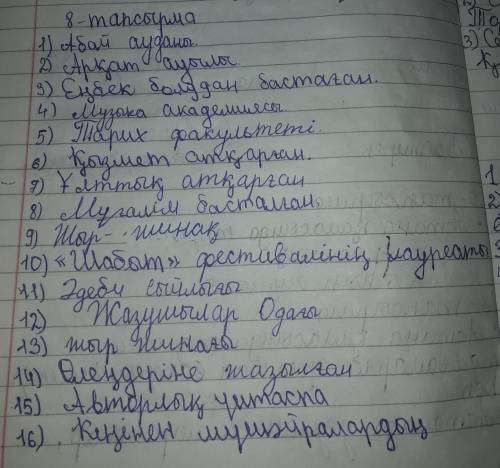 8-тапсырма
1) Абай ауданы.
2) Арқат ауылы
3) Еңбек болудан бастаған.
4) Музыка академиясы
5) Тарих факультеті.
6) Қызмет атқарған.
7) Ұлттық атқарған
8) Мұғалім басталған.
9) Жыр-жинақ
10) «Шабыт» фестивалінің лауреаты
11) Әдеби сыйлығы
12) Жазушылар Одағы
13) жыр жинағы
14) Өлеңдеріне жазылған
15) Авторлық үнтаспа
16) Кеңінен мүшәйралардың
3) Са
1
2